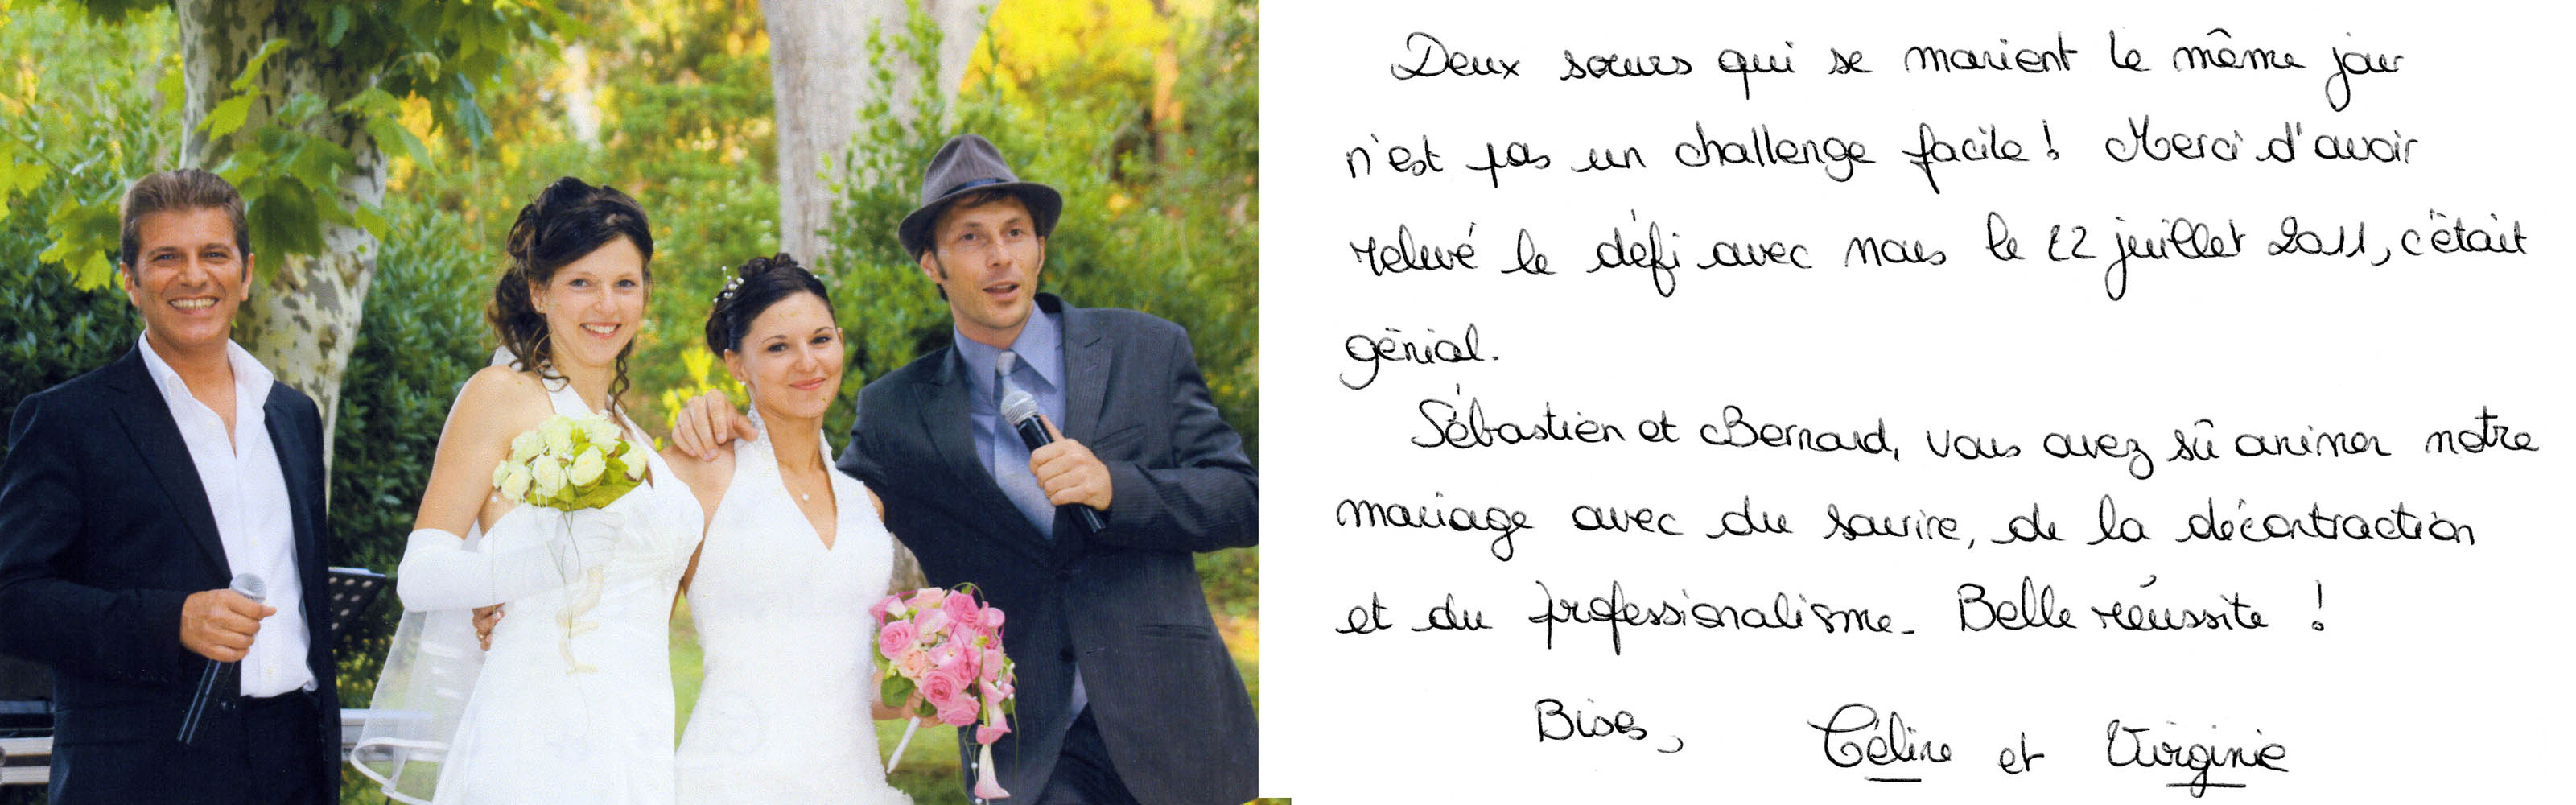 Deux sœurs qui se marient le même jour
n'est pas un challenge facile ! Merci d'avoir
relevé le défi avec nous le 22 juillet 2011, c'était
génial.
Sébastien et Bernard, vous avez sû animer notre
mariage avec du sourire, de la décontraction
et du professionalisme. Belle réussite !
Bises, Céline et Virginie